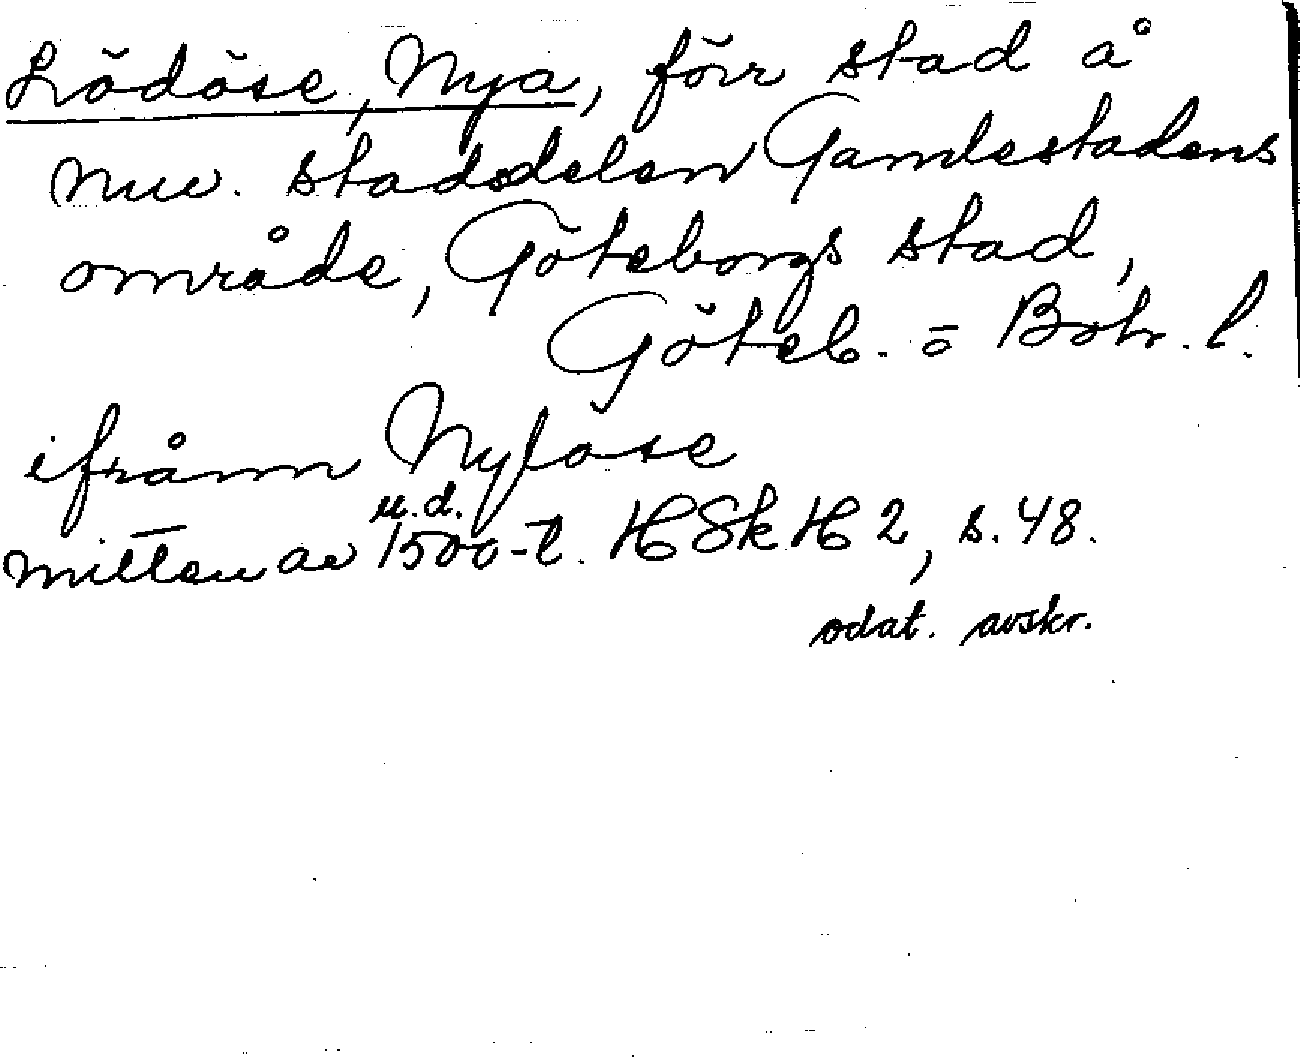 Lödöse, Nya, förr stad å
nuv. stadsdelen Gamlestadens
område, Göteborgs stad,
Göteb. o Boh. l.
ifrånn Nylöse
u.d.
mitten av 1500-t. HSkH 2, s. 48.
odat. avskr.